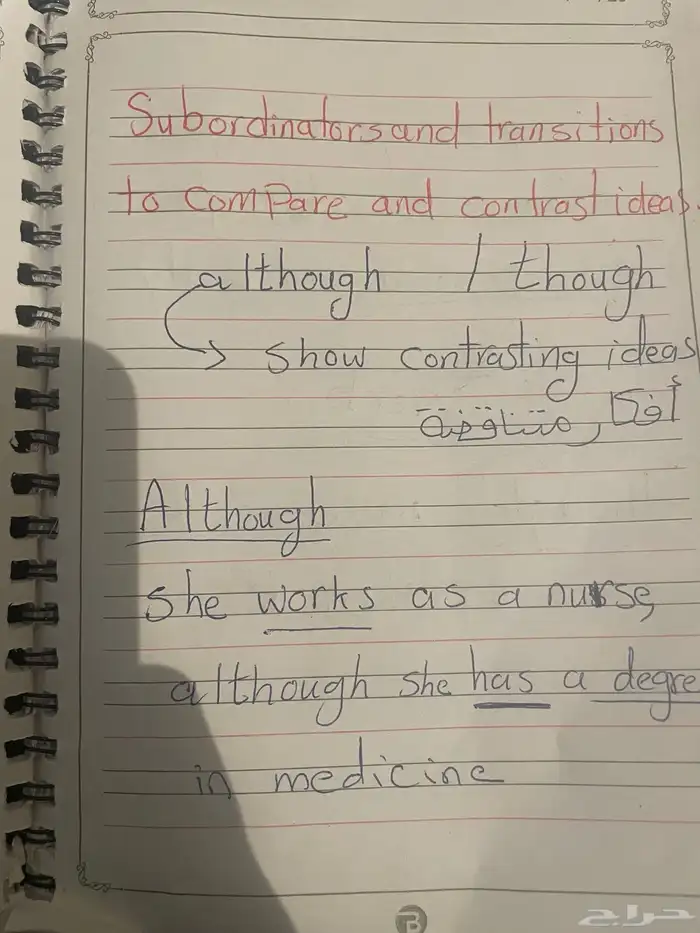 Subordinators and transitions
to compare and contrast ideas.
although / though
show contrasting ideas
أفكار متناقضة
Although
She works as a nurse,
although she has a degre
in medicine
B
حراج